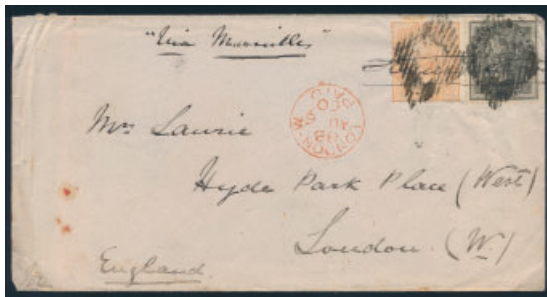 "Via Marseilles"
LONDON-W
PAID
Mrs Laurie
Hyde Park Place (West)
London. (W.)
England.